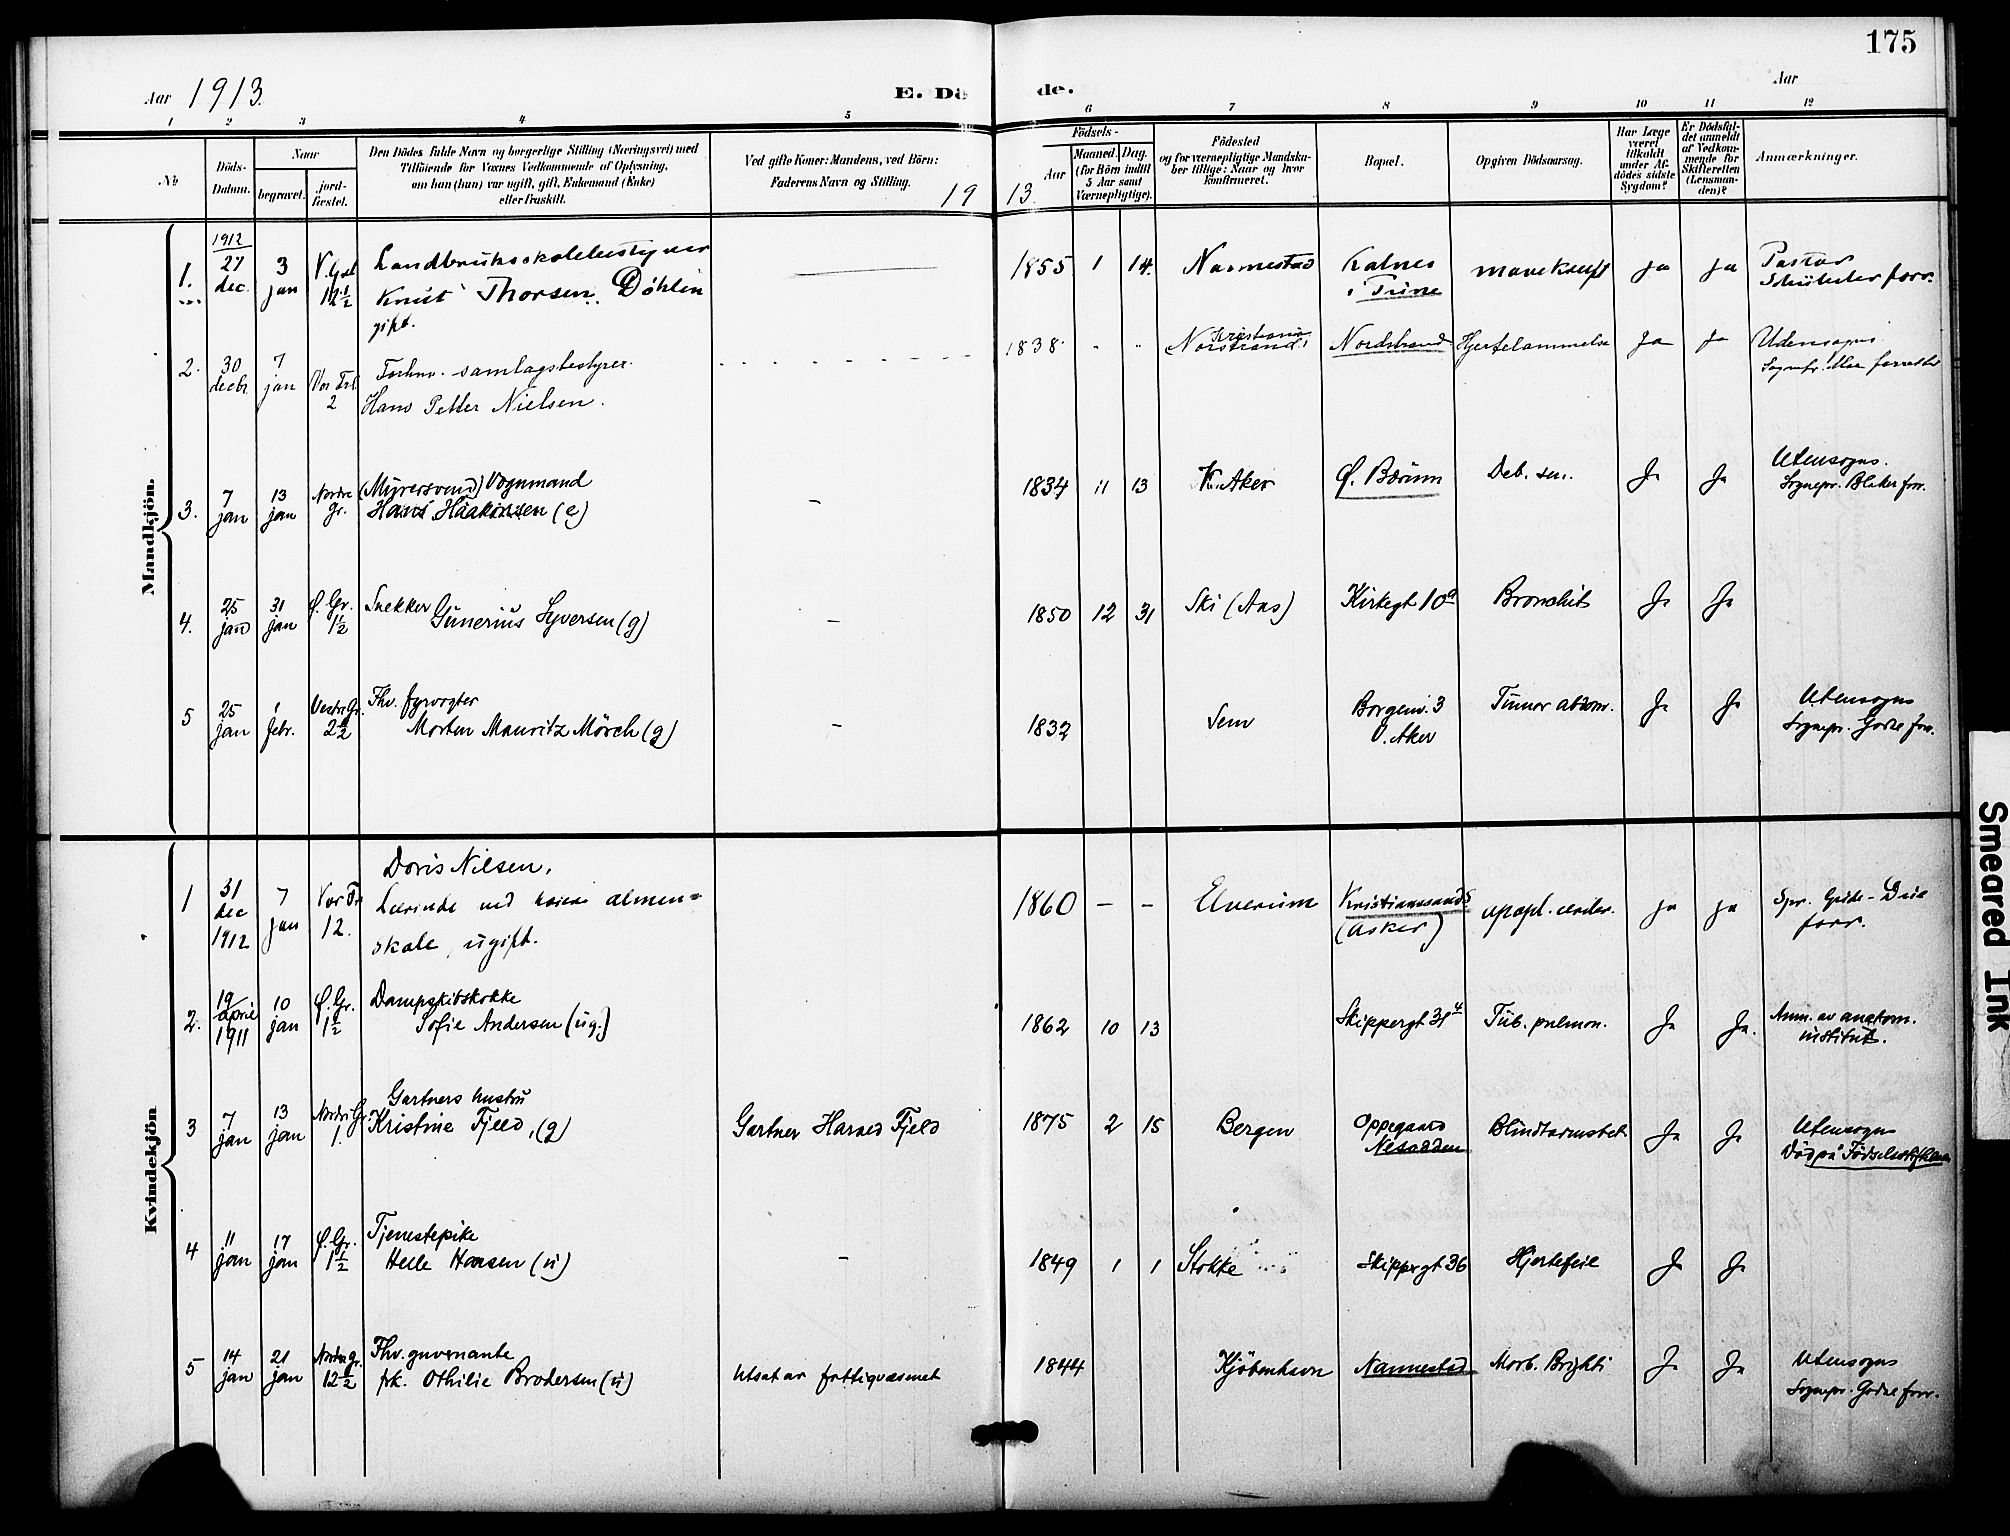 175
Aar 1913.
E. Dö de.
Aar
1 2 3 4 5 6 7 8 9 10 11 12
No
Döds-
Datum.
Naar
begravet.
jord-
fæstet.
Den Dödes fulde Navn og borgerlige Stilling (Næringsvei) med
Tilföiende for Voxnes Vedkommende af Oplysning,
om han (hun) var ugift, gift, Enkemand (Enke)
eller fraskilt.
Ved gifte Koner: Mandens, ved Börn:
Faderens Navn og Stilling.
Födsels-
Aar
Maaned. Dag.
(for Börn indtil
5 Aar samt
Værnepligtige).
Födested
og for værnepligtige Mandska-
ber tillige: Naar og hvor
konfirmeret.
Bopæl.
Opgiven Dödsaarsag.
Har Læge
været
tilkaldt
under Af-
dödes sidste
Sygdom?
Er Dödsfal-
det anmeldt
af Vedkom-
mende for
Skifteretten
(Lensman-
den)?
Anmærkninger.
19 13.
Mandkjön.
1.
1912
27
dec.
3
jan
Landbruksskolebestyrer
Knut Thorsen Döhlin
gift.
1855 1 14. Nannestad
Kalnes
i Tune
mavekræft
ja ja
Pastor
forr.
2.
30
decbr.
7
jan
Vor Frl.
2
Forhnv. samlagsbestyrer
Hans Petter Nielsen.
1838
Kristiania
Nordstrand
Hjertelammelse
Ja Ja
Udensogns
Sognepr. Moe forretter
3.
7
jan
13
jan
Nordre
Gr.
(Myrersvend) Vognmand
Hans Haakonsen (e)
–
1834 11 13
V. Aker
Ø. Bærum
Deb. sen.
Ja Ja
Utensogns.
Sognepr. Blaker forr.
4.
25
jan
31
jan
Ø. Gr.
1½
Snekker
Gunerius Syversen (g)
–
1850 12 31
Ski (Aas)
Kirkegt 10a
Bronchit
Ja Ja
5
25
jan
1
febr.
Vestre Gr.
2½
Fhv. fyrvogter
Morten Mauritz Mörch (g)
–
1832
Sem
Borgenv. 3
V. Aker
Tumor abdom.
Ja Ja
Utensogns
Sognepr. Godal forr.
Kvindekjön
1
31
dec
1912
7
jan
Vor Fr
12.
Doris Nilsen,
Lærinde ved höiere almen=
skole, ugift.
1860 – –
Elverum
Kristianssand
(Asker)
apopl. cerebr.
ja ja
Spr. Gride-Due
forr.
2.
19
april
1911
10
jan
Ø. Gr.
1½
Dampskibskokke
Sofie Andersen (ug.)
1862 10 13
Skippergt 31 4
Tub. pulmon.
Ja Ja.
Anm. av anatom.
institut.
3
7
jan
13
jan
Nordre Gr.
1.
Gartners hustru
Kristine Fjeld, (g)
Gartner Harald Fjeld
1875 2 15
Bergen
Oppegaard
Nesodden
Blindtarmsbet.
Ja Ja
Utensogns
Död på Födselsstiftelsen
4
11
jan
17
jan
Ø. Gr.
1½
Tjenestepike
Helle Hansen (u)
–
1849 1 1
Stokke
Skippergt 36
Hjertefeil
Ja Ja
5
14
jan
21
jan
Nordre Gr.
12½
Fhv. guvernante
frk. Othilie Brodersen (u)
Utsat av fattigvæsenet
1844
Kjöbenhavn
Nannestad
Morb. Brighti
Ja Ja
Utensogns
Sognepr. Godal forr.
Smeared Ink